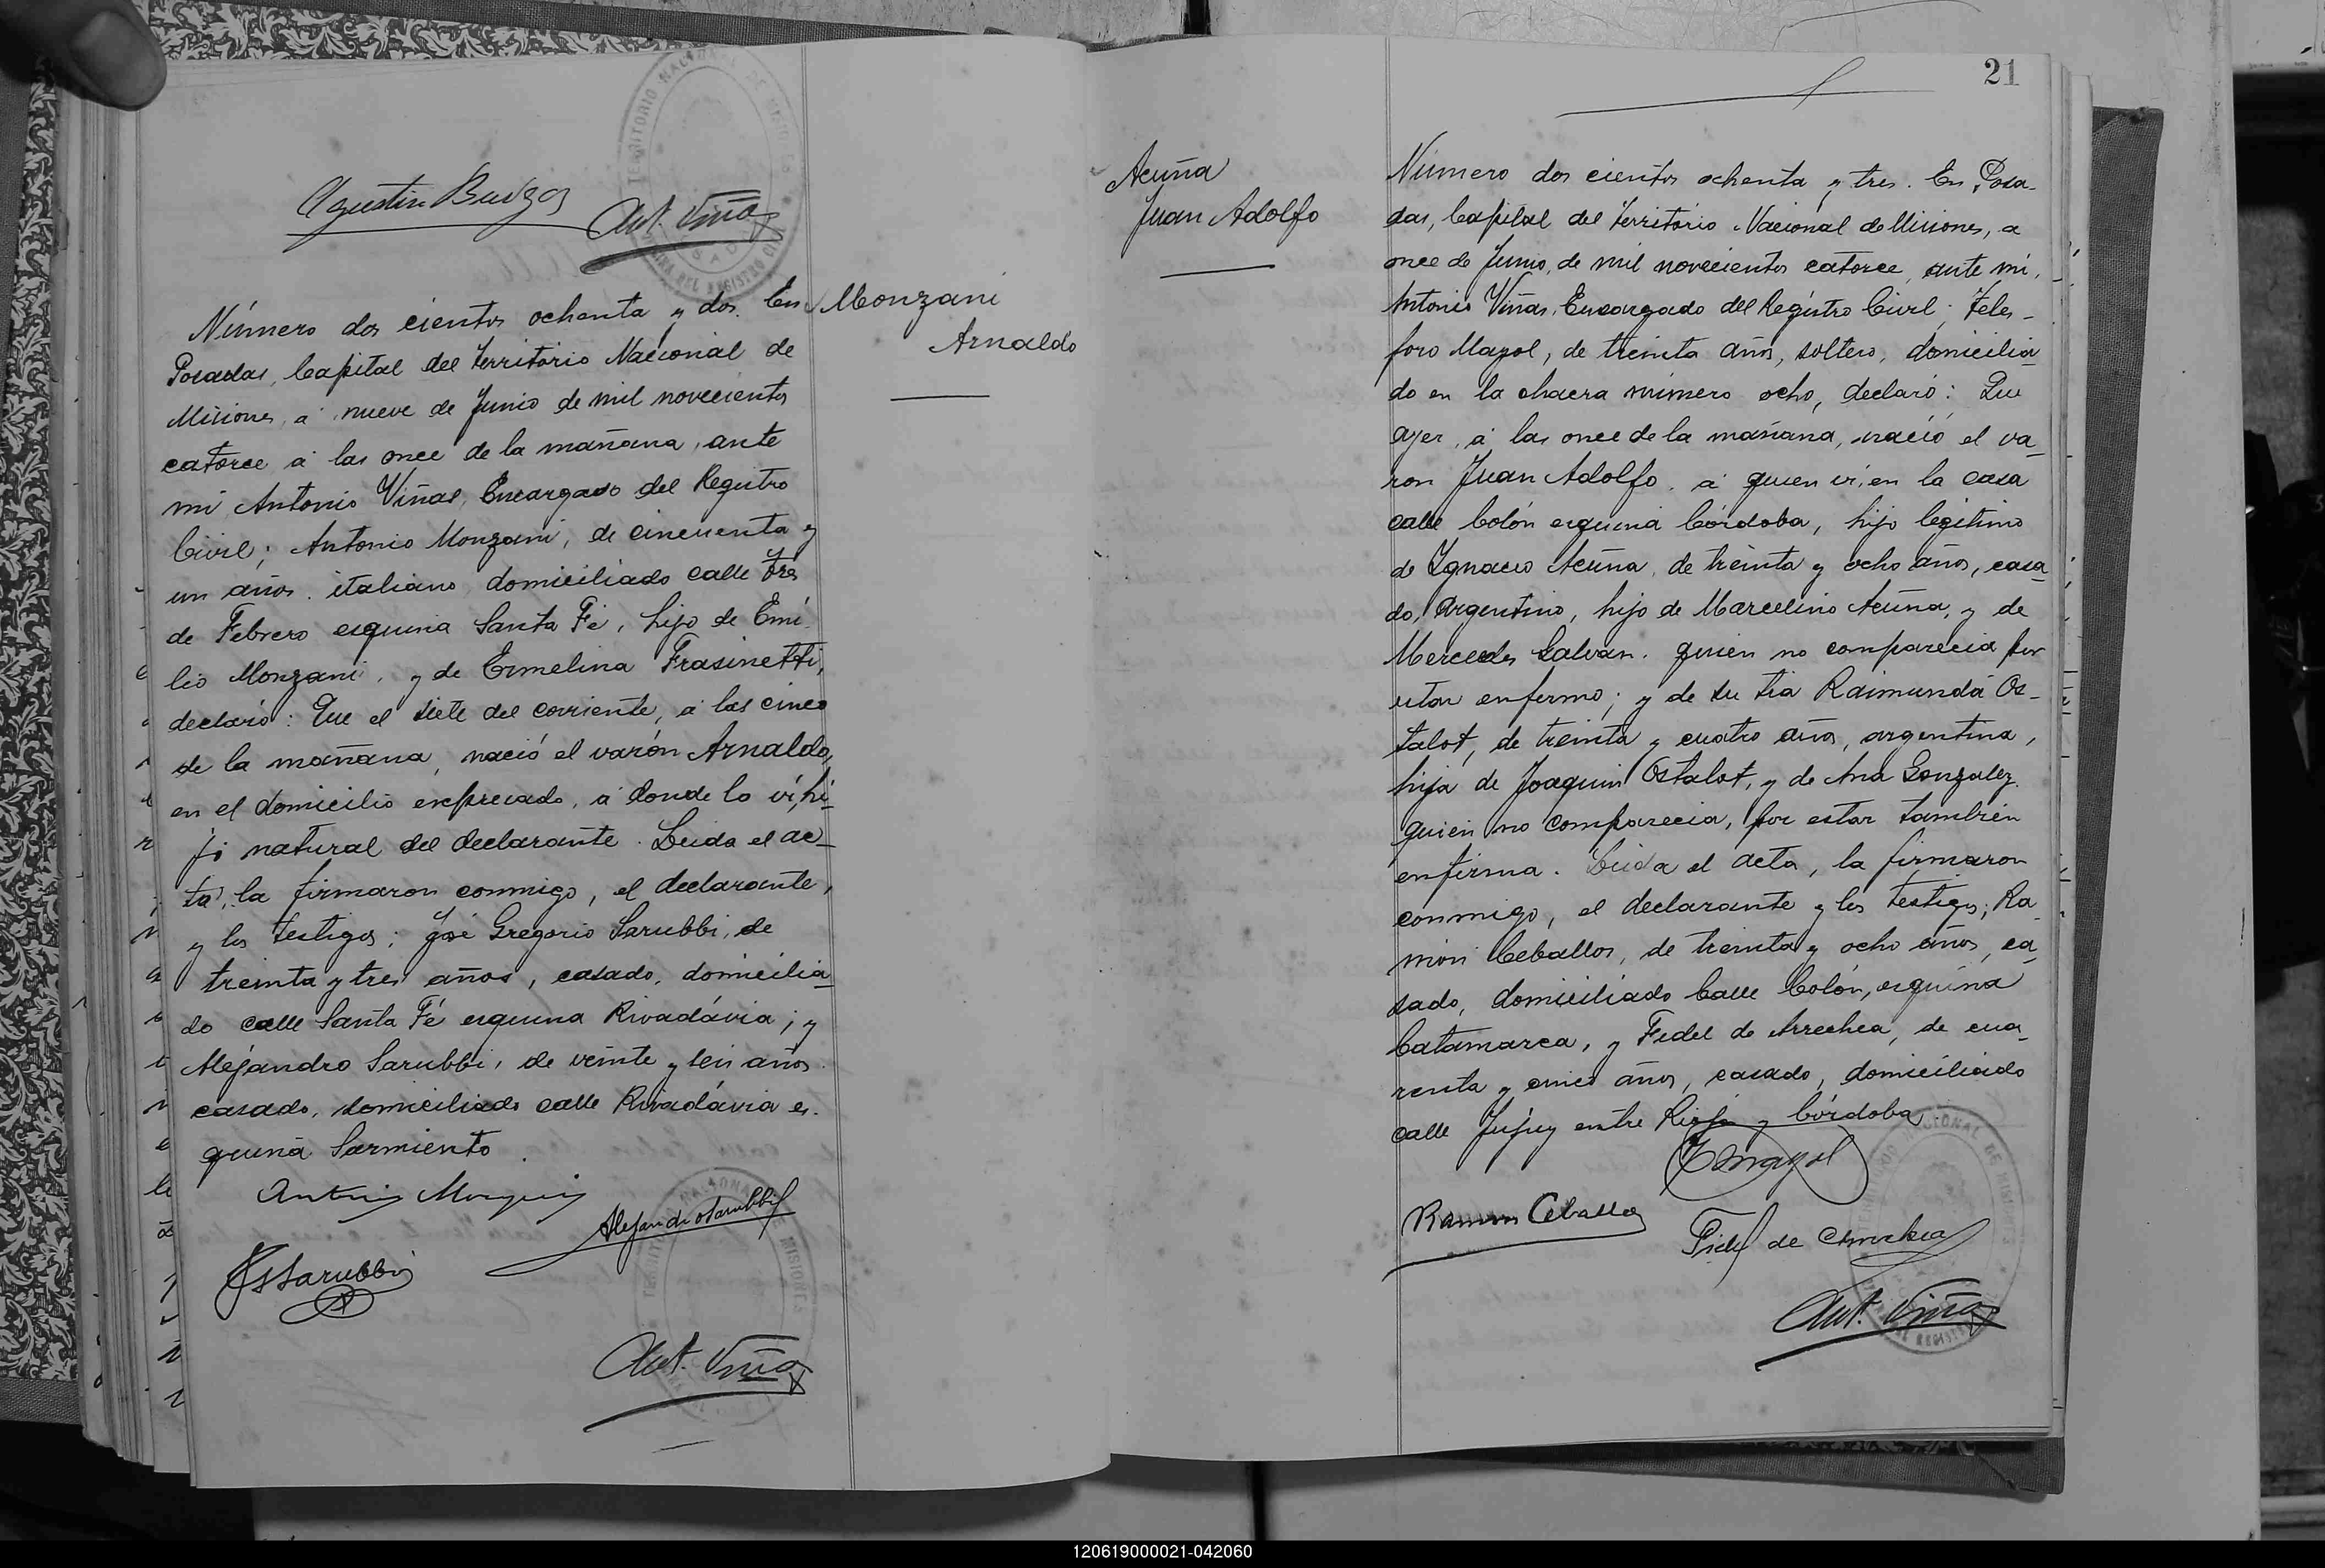 Agustin Burgos
Ant. Viñas
Número dos cientos ochenta y dos. En
Posadas, Capital del Territorio Nacional de
Misiones, á nueve de Junio de mil novecientos
catorce á las once de la mañana, ante
mi Antonio Viñas, Encargado del Registro
Civil; Antonio Monzani, de cincuenta y
un años. italiano, domiciliado calle tres
de Febrero esquina Santa Fé, hijo de Emi
lio Monzani, y de Ermelina Frasinetti,
declaró: Que el siete del corriente, á las cinco
de la mañana, nació el varón Arnaldo,
en el domicilio expresado, á donde lo ví, hi_
jo natural del declarante. Leida el ac_
ta, la firmaron conmigo, el declarante,
y los testigos; José Gregorio Sarubbi, de
treinta y tres años, casado, domicilia_
do calle Santa Fé esquina Rivadávia; y
Alejandro Sarubbi, de veinte y seis años
casado, domiciliado calle Rivadávia es.
quina Sarmiento.
Alejandro Sarubbi
JGSarubbi
Ant. Viñas
Monzani
Arnaldo
21
Acuña
Juan Adolfo
Número dos cientos ochenta y tres. En Posa_
das, Capital del Territorio Nacional de Misiones, a
once de Junio, de mil novecientos catorce, ante mi,
Antonio Viñas, Encargado del Registro Civil; Teles_
foro Mayol, de treinta años, soltero, domicilia_
do en la chacra número ocho, declaró: Que
ayer, á las once de la mañana, nació el va_
ron Juan Adolfo, á quien ví, en la casa
calle Colón esquina Córdoba, hijo legitimo
de Ignacio Acuña, de treinta y ocho años, casa_
do, Argentino, hijo de Marcelino Acuña, y de
Mercedes Galvan. quien no comparecia por
estar enfermo; y de su tia Raimunda Os_
talot, de treinta y cuatro años, argentina,
hija de Joaquin Ostalot, y de Ana Gonzalez.
quien no comparecia, por estar también
enferma. Leida el acta, la firmaron
conmigo, el declarante y los testigos; Ra_
món Ceballos, de treinta y ocho años, ca_
sado, domiciliado Calle Colón, esquina
Catamarca, y Fidel de Arrechea, de cua_
renta y cinco años, casado, domiciliado
calle Jujuy entre Rioja y Córdoba.
TMayol
Ramon Ceballos
Fidel de Arrechea
Ant. Viñas
120619000021-042060